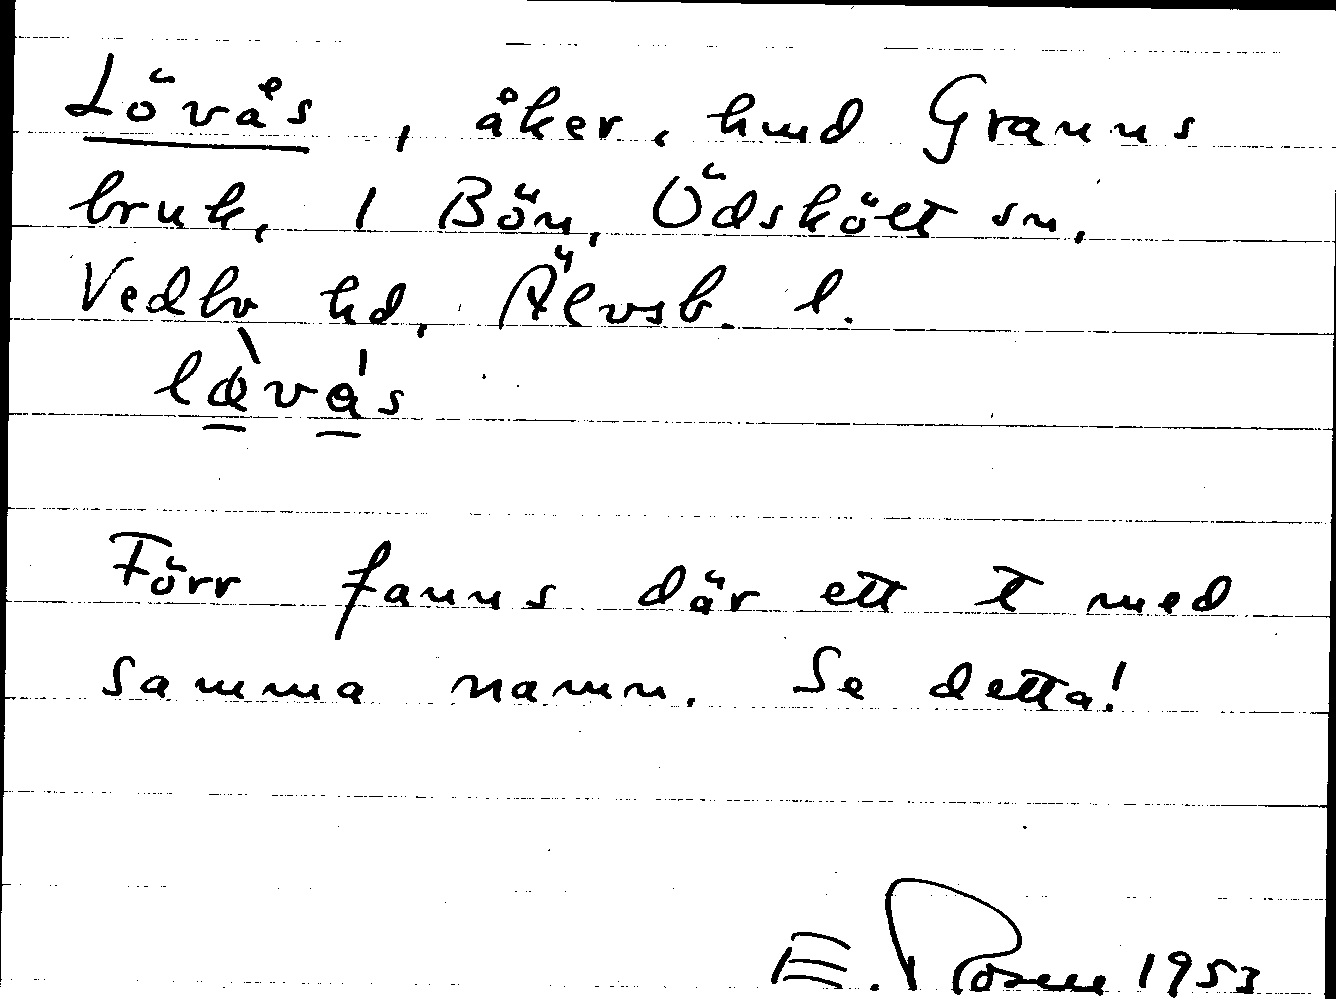 Lövås, åker, hmd Granns
bruk, 1 Bön, Ödskölt sn,
Vedbo hd, Älvsb. l.
Förr fanns där ett t med
samma namn. Se detta!
E. Rosell 1953